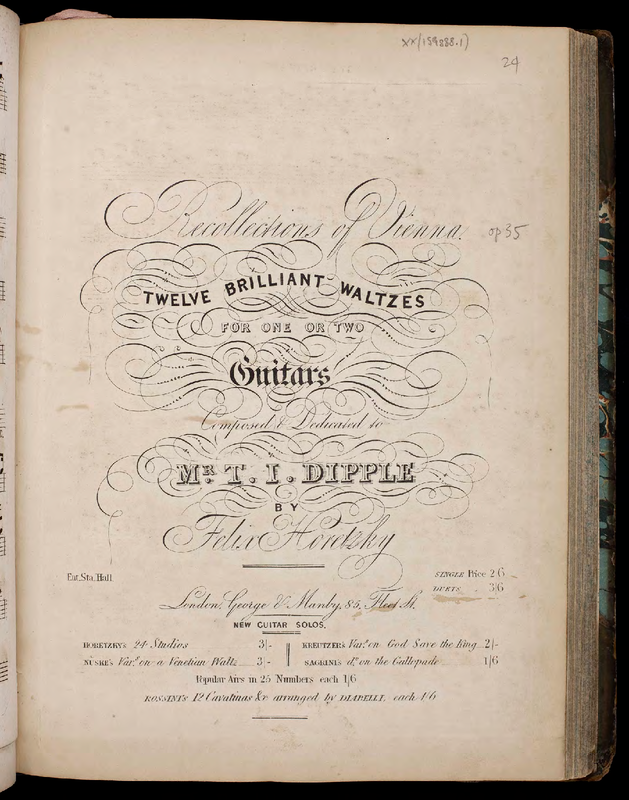 xx(159888.1)
24
Recollections of Vienna.
op 35
TWELVE BRILLIANT WALTZES
FOR ONE OR TWO
Guitars
Composed & Dedicated to
MR. T. I. DIPPLE
BY
Felix Horetzky
Ent. Sta. Hall
SINGLE Price 2/6
DUETS 3/6
London, George & Manby, 85, Fleet St.
NEW GUITAR SOLOS.
HORETZKY'S 24 Studios 3/-
KREUTZER'S Vars. on God Save the King 2/-
NÜSKE'S Vars. on a Venetian Waltz 3/-
SAGRINI'S do. on the Gallopade 1/6
Popular Airs in 25 Numbers each 1/6
ROSSINI'S 12 Cavatinas &c arranged by DIABELLI, each 1/6